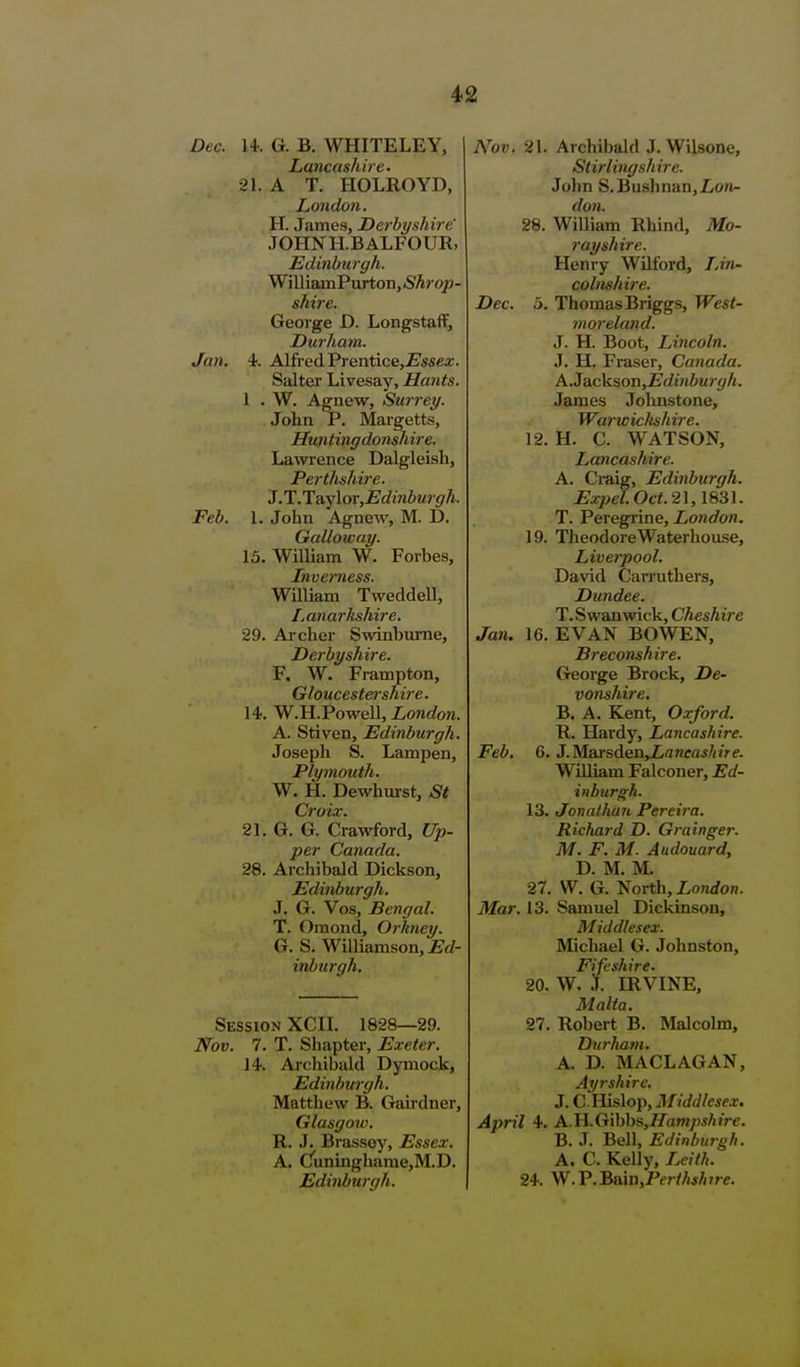 42
Dec. 14. G. B. WHITELEY,
Lancashire.
21. A T. HOLROYD,
London.
H. James, Derbyshire'
JOHN H. BALFOUR,
Edinburgh.
William Purton, Shrop-
shire.
George D. Longstaff,
Durham.
Jan. 4. Alfred Prentice, Essex.
Salter Livesay, Hants.
1 . W. Agnew, Surrey.
John P. Margetts,
Huntingdonshire.
Lawrence Dalgleish,
Perthshire.
J. T. Taylor, Edinburgh.
Feb. 1. John Agnew, M. D.
Galloway.
15. William W. Forbes,
Inverness.
William Tweddell,
Lanarkshire.
29. Archer Swinburne,
Derbyshire.
F. W. Frampton,
Gloucestershire.
14. W.H.Powell, London.
A. Stiven, Edinburgh.
Joseph S. Lampen,
Plymouth.
W. H. Dewhurst, St
Croix.
21. G. G. Crawford, Up-
per Canada.
28. Archibald Dickson,
Edinburgh.
J. G. Vos, Bengal.
T. Omond, Orkney.
G. S. Williamson, Ed-
inburgh.
Session XCII. 1828—29.
Nov. 7. T. Shapter, Exeter.
14. Archibald Dymock,
Edinburgh.
Matthew B. Gairdner,
Glasgow.
R. J. Brassey, Essex.
A. Cuninghame, M.D.
Edinburgh.
Nov. 21. Archibald J. Wilsone,
Stirlingshire.
John S. Bushnan, Lon-
don.
28. William Rhind, Mo-
rayshire.
Henry Wilford, Lin-
colnshire.
Dec. 5. Thomas Briggs, West-
moreland.
J. H. Boot, Lincoln.
J. H. Fraser, Canada.
A. Jackson, Edinburgh.
James Johnstone,
Warwickshire.
12. H. C. WATSON,
Lancashire.
A. Craig, Edinburgh.
Expel. Oct. 21, 1831.
T. Peregrine, London.
19. Theodore Waterhouse,
Liverpool.
David Carruthers,
Dundee.
T. Swanwick, Cheshire
Jan. 16. EVAN BOWEN,
Breconshire.
George Brock, De-
vonshire.
B. A. Kent, Oxford.
R. Hardy, Lancashire.
Feb. 6. J. Marsden, Lancashire.
William Falconer, Ed-
inburgh.
13. Jonathan Pereira.
Richard D. Grainger.
M. F. M. Audouard,
D. M. M.
27. W. G. North, London.
Mar. 13. Samuel Dickinson,
Middlesex.
Michael G. Johnston,
Fifeshire.
20. W. J. IRVINE,
Malta.
27. Robert B. Malcolm,
Durham.
A. D. MACLAGAN,
Ayrshire.
J. C. Hislop, Middlesex.
April 4. A.H. Gibbs, Hampshire.
B. J. Bell, Edinburgh.
A. C. Kelly, Leith.
24. W. P. Bain, Perthshire.